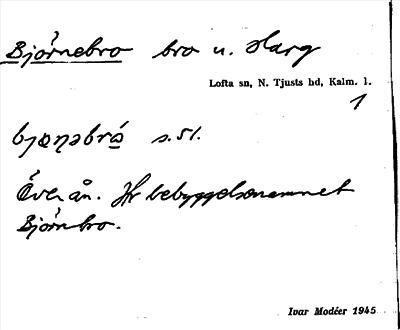 Björnebro bro u. Harg
Lofta sn, N. Tjusts hd, Kalm. l.
1
bjœṇəbró s. 51.
Över ån. Hr bebyggelsenamnet
Björnbro.
Ivar Modéer 1945